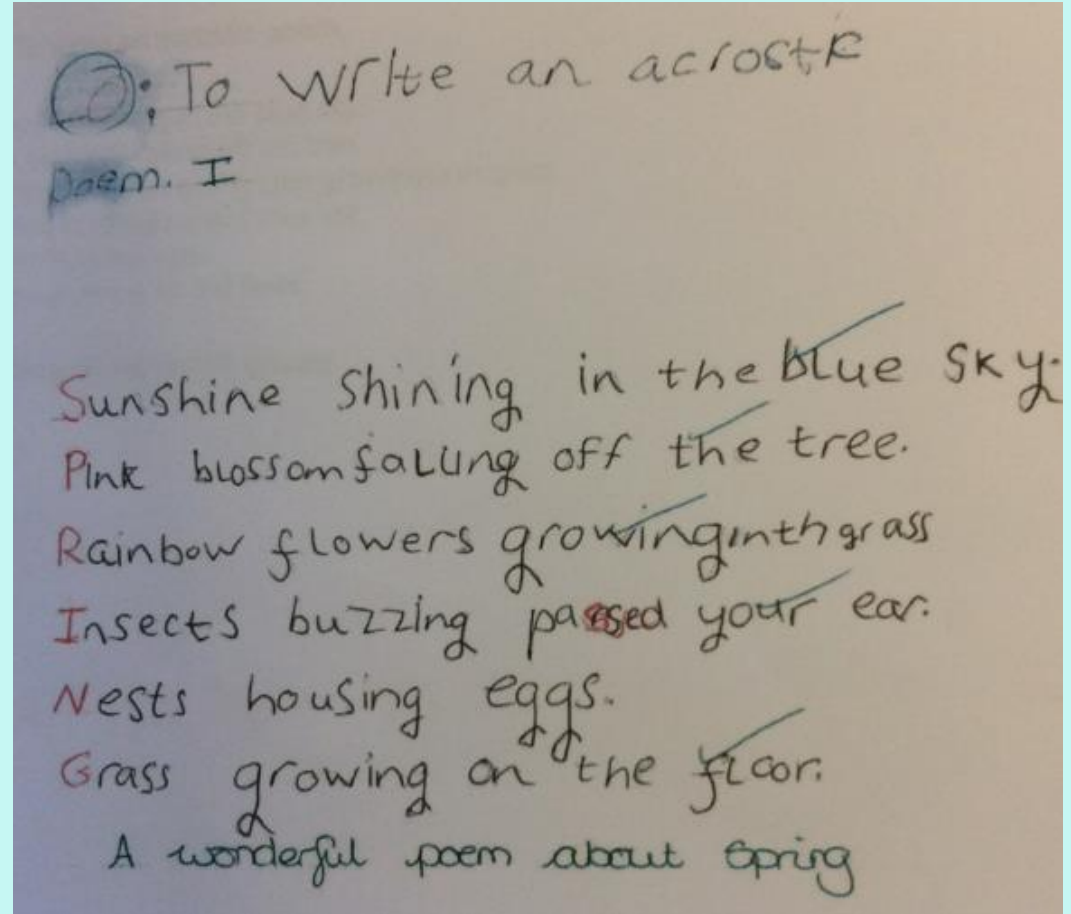 : To write an acrostic
poem. I
Sunshine shining in the blue sky.
Pink blossom falling off the tree.
Rainbow flowers growing inth grass
Insects buzzing passed your ear.
Nests housing eggs.
Grass growing on the floor.
A wonderful poem about Spring